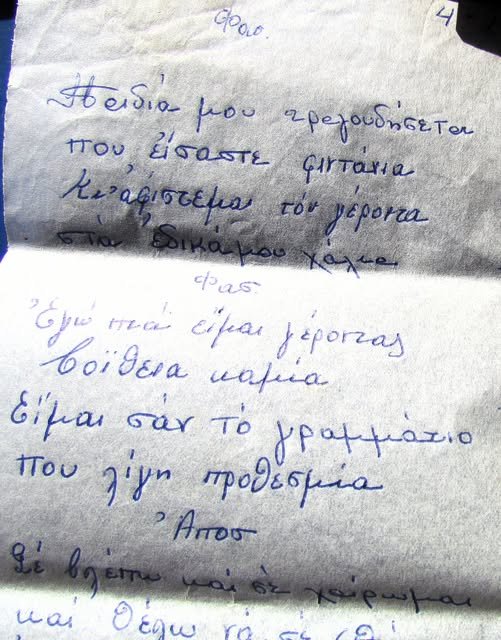 Φασ.
4
Παιδιά μου τραγουδήσεται
που εἴσαστε φιντάνια
Κι' ἀφίστεμαι τόν γέροντα
στά ἐδικά μου χάλια
Φασ.
Ἐγώ πιά εἴμαι γέροντας
βοϊθεια καμία
Εἴμαι σάν τό γραμμάτιο
που λίγη προθεσμία
Ἀποσ
Σέ βλέπω καί σέ χαίρωμαι
καί θέλω νά σέ